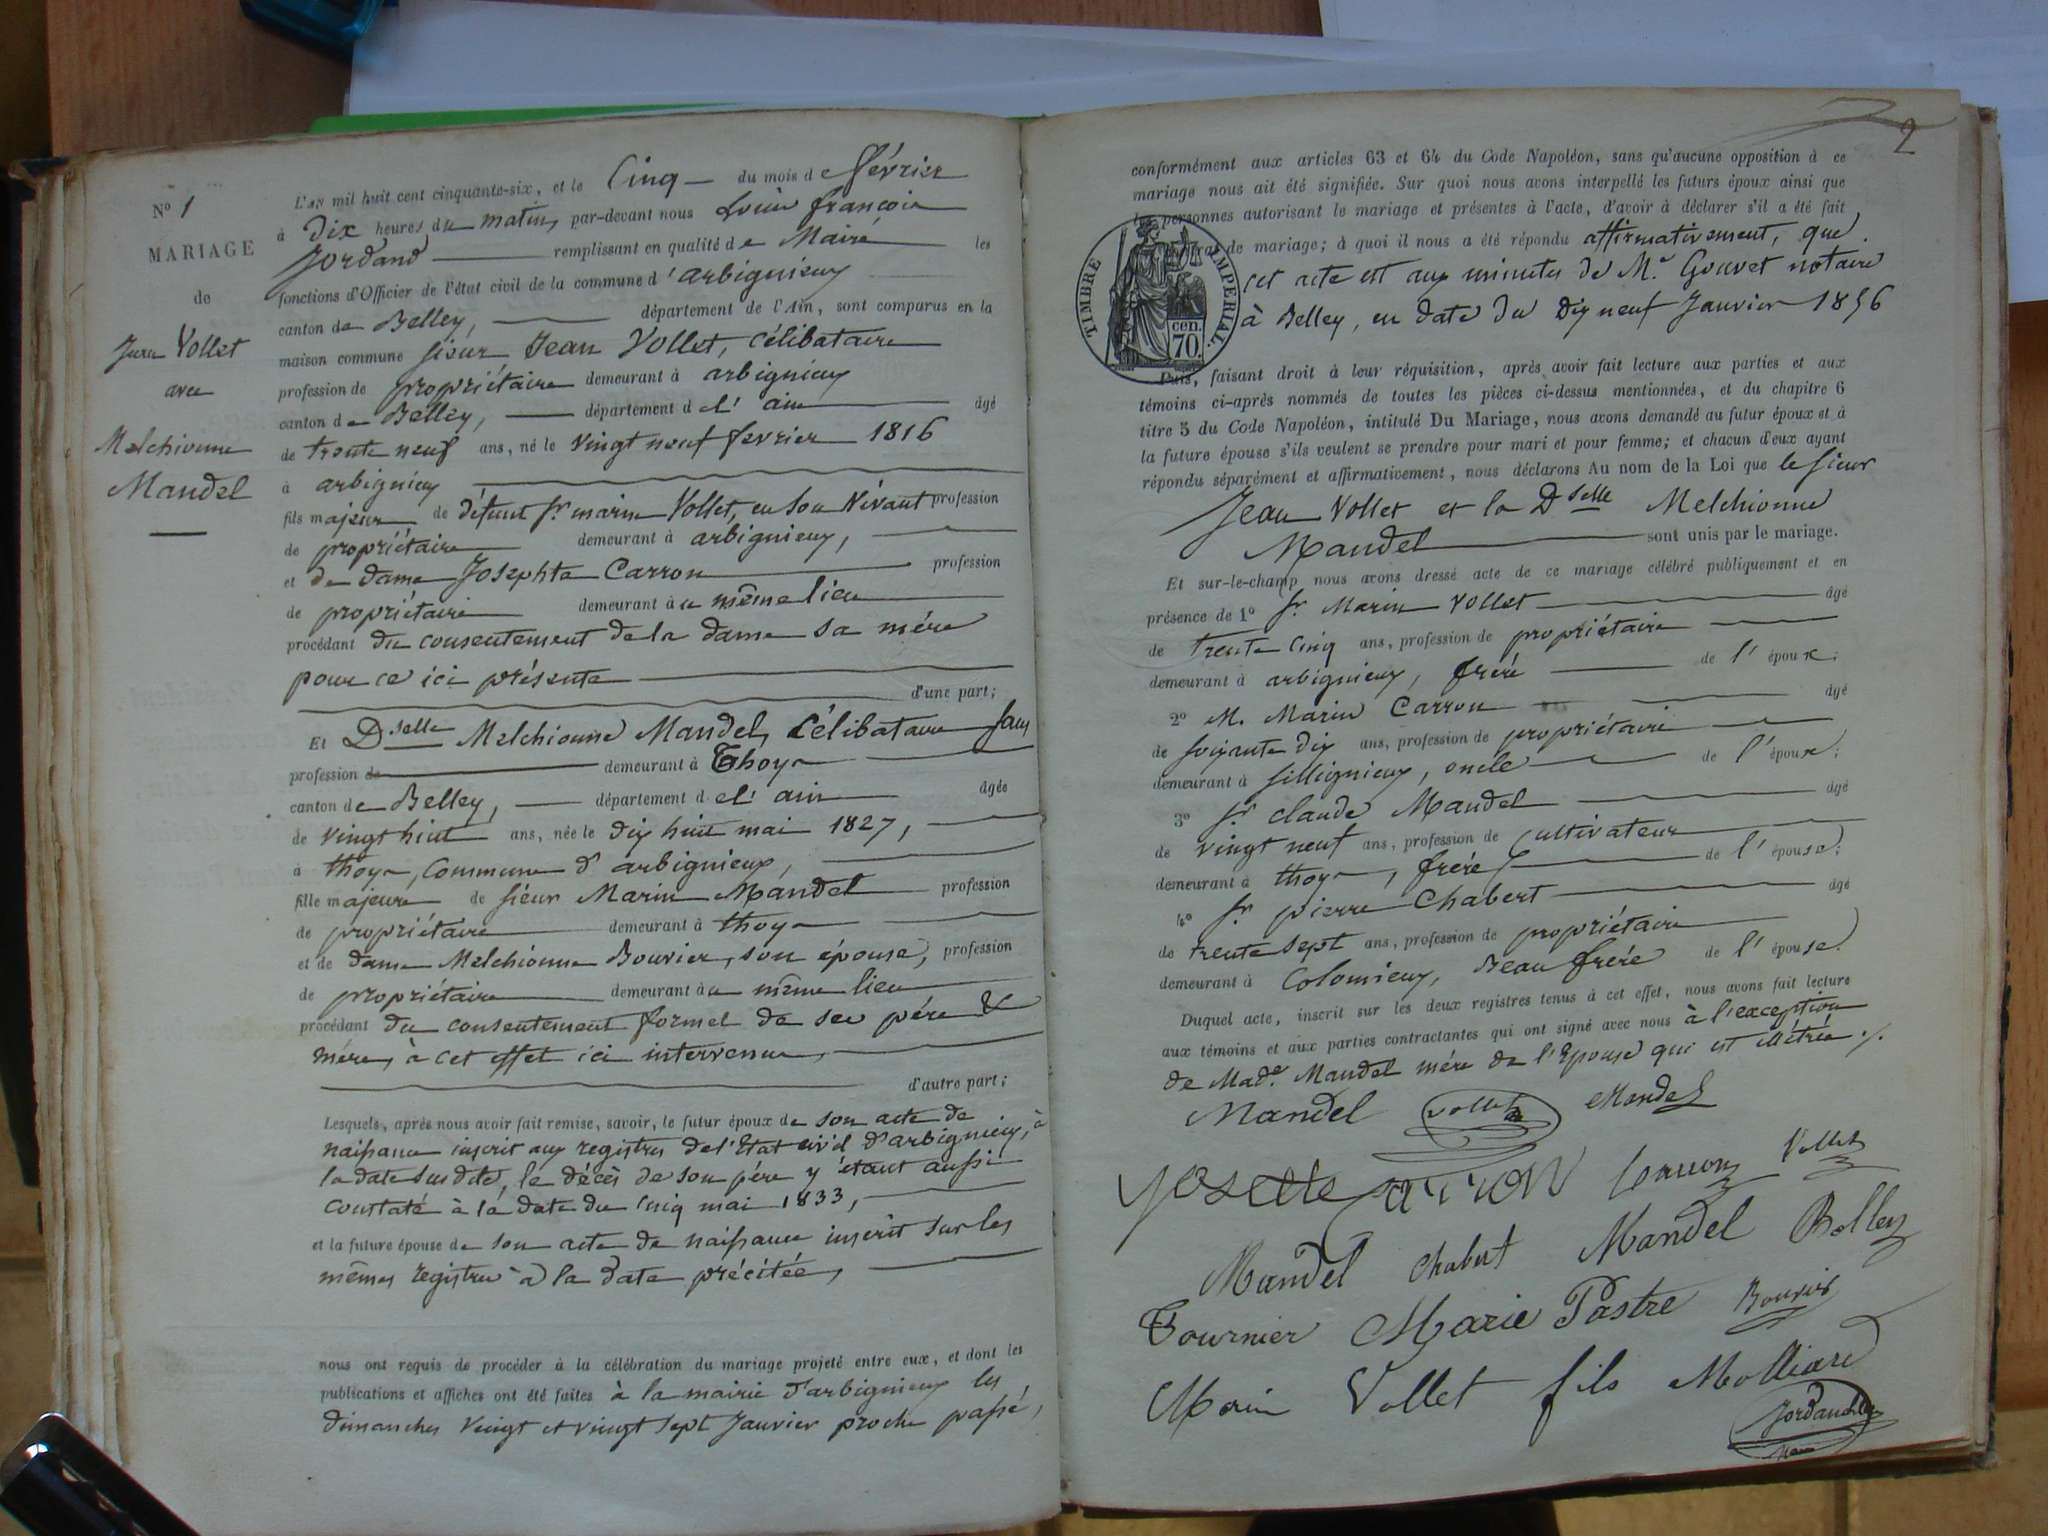 N° 1
MARIAGE
de
Jean Vollet
avec
Melchionne
Mandel
L'an mil huit cent cinquante-six, et le Cinq du mois de février
à Dix heures du matin, par-devant nous Louis françois
Jordand remplissant en qualité de Maire les
fonctions d'Officier de l'état civil de la commune d'arbignieux
canton de Belley, département de l'Ain, sont comparus en la
maison commune sieur Jean Vollet, Célibataire
profession de propriétaire demeurant à arbignieux
canton de Belley, département de l'ain âgé
de trente neuf ans, né le vingt neuf fevrier 1816
à arbignieux
fils majeur de défunt Sr. marin Vollet, en son vivant profession
de propriétaire demeurant à arbignieux,
et de dame Josephte Carron profession
de propriétaire demeurant au même lieu
procédant du consentement de la dame sa mére
pour ce ici présente
d'une part;
Et Dselle Melchionne Mandel, Célibataire sans
profession de demeurant à Thoys
canton de Belley, département de l'ain âgée
de vingt huit ans, née le dix huit mai 1827,
à thoys, Commune d'arbignieux,
fille majeure de sieur Marin Mandel profession
de propriétaire demeurant à thoys
et de dame Melchionne Bouvier, son épouse, profession
de propriétaire demeurant au même lieu
procédant du consentement formel de ses pére &
mére, à cet effet ici intervenus,
d'autre part;
Lesquels, après nous avoir fait remise, savoir, le futur époux de son acte de
naissance inscrit aux registres de l'Etat civil d'arbignieux, à
la date susdite, le décès de son pére y étant aussi
constaté à la date du cinq mai 1833,
et la future épouse de son acte de naissance inscrit sur les
mêmes registres à la date précitée,
nous ont requis de procéder à la célébration du mariage projeté entre eux, et dont les
publications et affiches ont été faites à la mairie d'arbignieux les
dimanches vingt et vingt sept Janvier proche passé,
2
conformément aux articles 63 et 64 du Code Napoléon, sans qu'aucune opposition à ce
mariage nous ait été signifiée. Sur quoi nous avons interpellé les futurs époux ainsi que
les personnes autorisant le mariage et présentes à l'acte, d'avoir à déclarer s'il a été fait
contrat de mariage; à quoi il nous a été répondu affirmativement, que
cet acte est aux minutes de Me. Gouvet notaire
à Belley, en date du Dix neuf Janvier 1856
TIMBRE IMPERIAL.
cen.
70.
Puis, faisant droit à leur réquisition, après avoir fait lecture aux parties et aux
témoins ci-après nommés de toutes les pièces ci-dessus mentionnées, et du chapitre 6
titre 5 du Code Napoléon, intitulé Du Mariage, nous avons demandé au futur époux et à
la future épouse s'ils veulent se prendre pour mari et pour femme; et chacun d'eux ayant
répondu séparément et affirmativement, nous déclarons Au nom de la Loi que le sieur
Jean Vollet et la Dselle Melchionne
Mandel sont unis par le mariage.
Et sur-le-champ nous avons dressé acte de ce mariage célébré publiquement et en
présence de 1° Sr. Marin Vollet âgé
de trente cinq ans, profession de propriétaire
demeurant à arbignieux, frére de l'époux;
2° M. Marin Carron âgé
de soixante dix ans, profession de propriétaire
demeurant à sillignieux, oncle de l'époux;
3° Sr. claude Mandel âgé
de vingt neuf ans, profession de cultivateur
demeurant à thoys, frére de l'épouse;
4° Sr. pierre Chabert âgé
de trente sept ans, profession de propriétaire
demeurant à Colomieux, Beau frére de l'épouse.
Duquel acte, inscrit sur les deux registres tenus à cet effet, nous avons fait lecture
aux témoins et aux parties contractantes qui ont signé avec nous à l'exception
de Made. Mandel mére de l'Epouse qui est illétrée ./.
Mandel Vollet Mandel
Josette carron Carron Vollet
Mandel Chabert Mandel Bolley
Fournier Marie Pastre Bouvier
Marin Vollet fils Molliard
Jordand
Maire